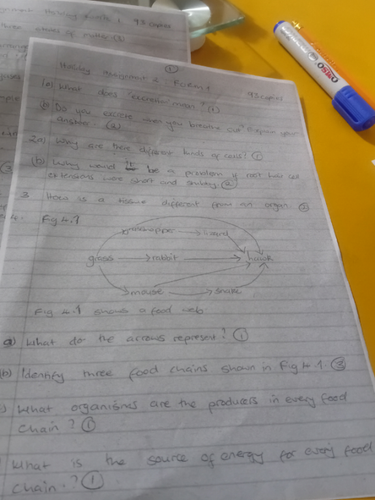 Holiday assignment 2 Form 1 93 copies
1(a) What does 'excretion' mean? (1)
(b) Do you excrete when you breathe out? Explain your
answer. (2)
2(a) Why are there different kinds of cells? (1)
(b) Why would it be a problem if root hair cell
extensions were short and stubby? (2)
3. How is a tissue different from an organ. (2)
4. Fig 4.1
grasshopper lizard
grass rabbit hawk
mouse snake
Fig 4.1 shows a food web
a) What do the arrows represent? (1)
(b) Identify three food chains shown in Fig 4.1. (3)
What organisms are the producers in every food
chain? (1)
What is the source of energy for every food
chain? (1)